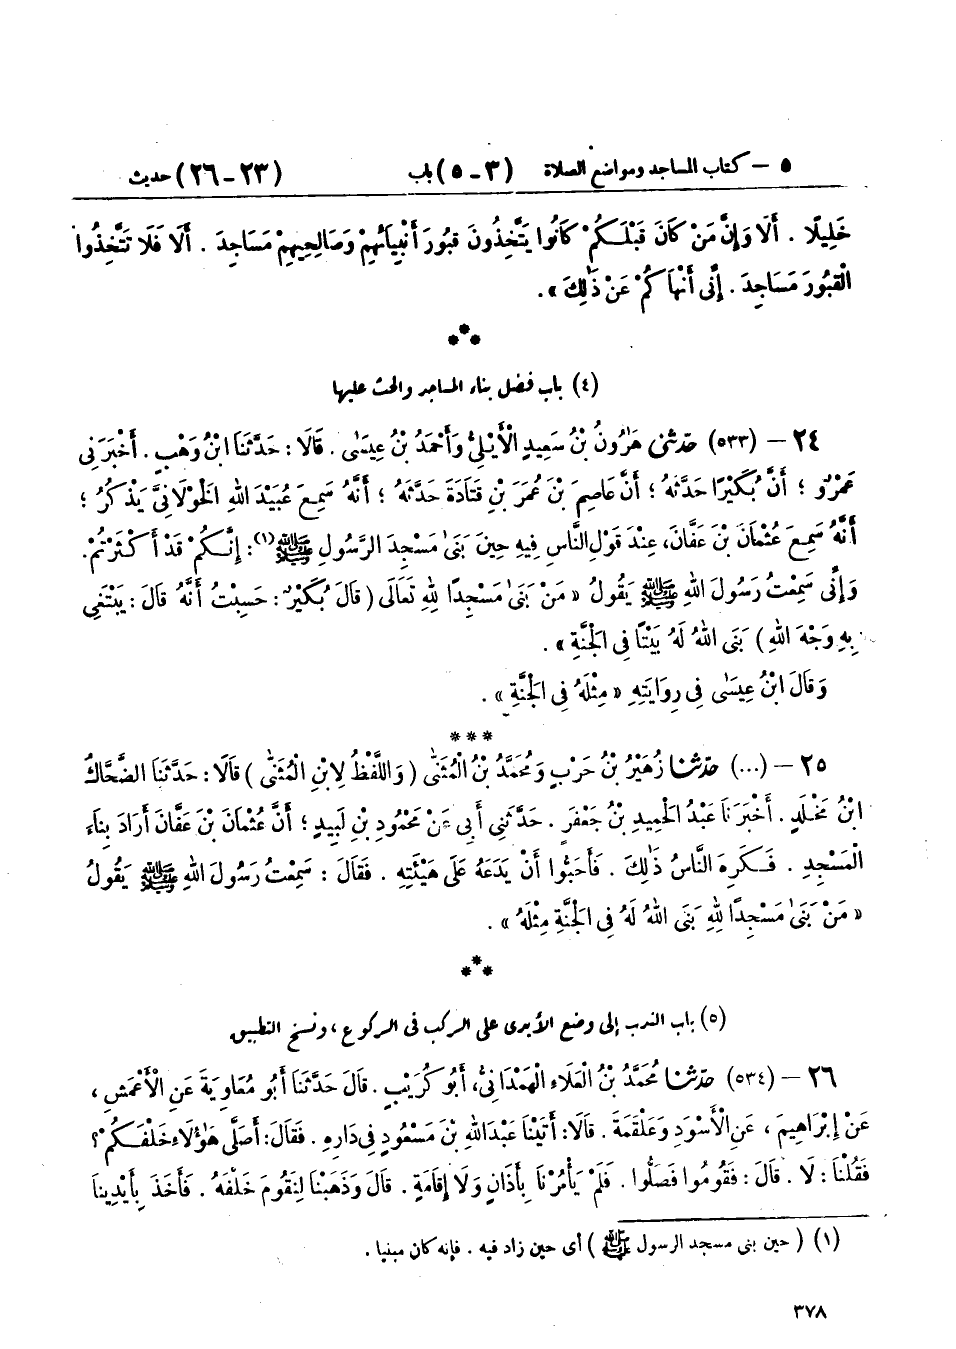 ٥ – كتاب المساجد ومواضع الصلاة (٣ - ٥) باب (٢٣ - ٢٦) حديث
خَلِيلًا . أَلَا وَإِنَّ مَنْ كَانَ قَبْلَكُمْ كَانُوا يَتَّخِذُونَ قُبُورَ أَنْبِيَائِهِمْ وَصَالِحِيهِمْ مَسَاجِدَ . أَلَا فَلَا تَتَّخِذُوا
الْقُبُورَ مَسَاجِدَ . إِنِّى أَنْهَاكُمْ عَنْ ذَٰلِكَ » .
***
(٤) باب فضل بناء المساجد والحث عليها
٢٤ – (٥٣٣) حَدَّثَنِى هَٰرُونُ بْنُ سَعِيدٍ الْأَيْلِىُّ وَأَحْمَدُ بْنُ عِيسَىٰ . قَالَا : حَدَّثَنَا ابْنُ وَهْبٍ . أَخْبَرَنِى
عَمْرٌو ؛ أَنَّ بُكَيْرًا حَدَّثَهُ ؛ أَنَّ عَاصِمَ بْنَ عُمَرَ بْنِ قَتَادَةَ حَدَّثَهُ ؛ أَنَّهُ سَمِعَ عُبَيْدَ اللهِ الْخَوْلَانِىَّ يَذْكُرُ ؛
أَنَّهُ سَمِعَ عُثْمَانَ بْنَ عَفَّانَ، عِنْدَ قَوْلِ النَّاسِ فِيهِ حِينَ بَنَىٰ مَسْجِدَ الرَّسُولِ ﷺ(١): إِنَّكُمْ قَدْ أَكْثَرْتُمْ.
وَإِنِّى سَمِعْتُ رَسُولَ اللهِ ﷺ يَقُولُ « مَنْ بَنَىٰ مَسْجِدًا لِلهِ تَعَالَى ( قَالَ بُكَيْرٌ : حَسِبْتُ أَنَّهُ قَالَ : يَبْتَغِى
بِهِ وَجْهَ اللهِ ) بَنَى اللهُ لَهُ بَيْتًا فِى الْجَنَّةِ » .
وَقَالَ ابْنُ عِيسَىٰ فِى رِوَايَتِهِ « مِثْلَهُ فِى الْجَنَّةِ » .
***
٢٥ – (...) حَدَّثَنَا زُهَيْرُ بْنُ حَرْبٍ وَمُحَمَّدُ بْنُ الْمُثَنَّىٰ ( وَاللَّفْظُ لِابْنِ الْمُثَنَّىٰ ) قَالَا : حَدَّثَنَا الضَّحَّاكُ
ابْنُ مَخْلَدٍ . أَخْبَرَنَا عَبْدُ الْحَمِيدِ بْنُ جَعْفَرٍ . حَدَّثَنِى أَبِى عَنْ مَحْمُودِ بْنِ لَبِيدٍ ؛ أَنَّ عُثْمَانَ بْنَ عَفَّانَ أَرَادَ بِنَاءَ
الْمَسْجِدِ . فَكَرِهَ النَّاسُ ذَٰلِكَ . فَأَحَبُّوا أَنْ يَدَعَهُ عَلَى هَيْئَتِهِ . فَقَالَ : سَمِعْتُ رَسُولَ اللهِ ﷺ يَقُولُ
« مَنْ بَنَىٰ مَسْجِدًا لِلهِ بَنَى اللهُ لَهُ فِى الْجَنَّةِ مِثْلَهُ » .
***
(٥) باب الندب إلى وضع الأيدى على الركب فى الركوع ، ونسخ التطبيق
٢٦ – (٥٣٤) حَدَّثَنَا مُحَمَّدُ بْنُ الْعَلَاءِ الْهَمْدَانِىُّ، أَبُو كُرَيْبٍ . قَالَ حَدَّثَنَا أَبُو مُعَاوِيَةَ عَنِ الْأَعْمَشِ ،
عَنْ إِبْرَاهِيمَ ، عَنِ الْأَسْوَدِ وَعَلْقَمَةَ . قَالَا: أَتَيْنَا عَبْدَ اللهِ بْنَ مَسْعُودٍ فِى دَارِهِ . فَقَالَ: أَصَلَّى هَٰؤُلَاءِ خَلْفَكُمْ ؟
فَقُلْنَا : لَا . قَالَ : فَقُومُوا فَصَلُّوا . فَلَمْ يَأْمُرْنَا بِأَذَانٍ وَلَا إِقَامَةٍ . قَالَ وَذَهَبْنَا لِنَقُومَ خَلْفَهُ . فَأَخَذَ بِأَيْدِينَا
(١) ( حين بنى مسجد الرسول ﷺ ) أى حين زاد فيه . فإنه كان مبنيا .
٣٧٨